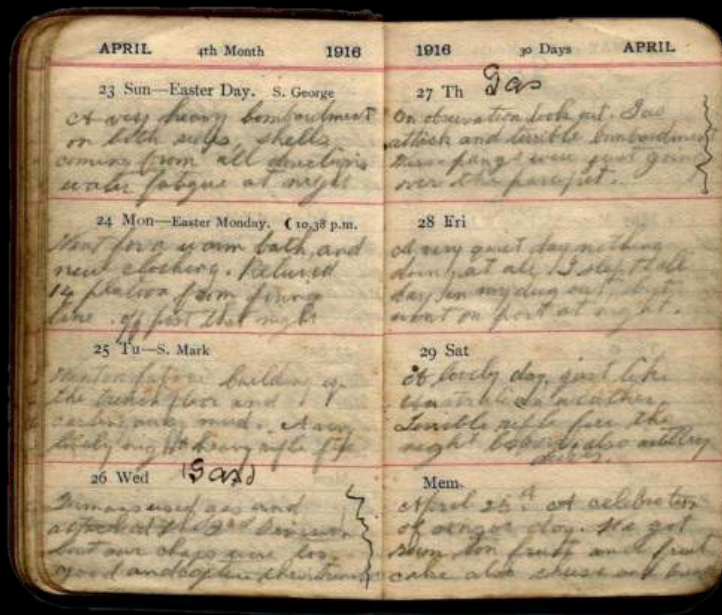 APRIL 4th Month 1916
23 Sun—Easter Day. S. George
A very heavy bombardment
on both sides, shells
coming from all directions
water fatigue at night
24 Mon—Easter Monday. ☾ 10.38 p.m.
Went for a warm bath and
new clothing. Relieved
14 platoon from firing
line. off post that night
25 Tu—S. Mark
fatigue building up
the trench floor and
mud. A very
lively night heavy rifle fire
26 Wed (Gas)
used gas and
attacked the 2nd Division
but our chaps were too
good and
1916 30 Days APRIL
27 Th Gas
On observation look out. Gas
attack and terrible bombardment
were just going
over the parapet.
28 Fri
A very quiet day nothing
doing at all I slept all
day in my dug out but
went on post at night.
29 Sat
A lovely day, just like
Australian weather
Terrible rifle fire the
night before also artillery
Mem.
April 25th A celebration
of anzac day. We got
fruit and fruit
cake also cheese and